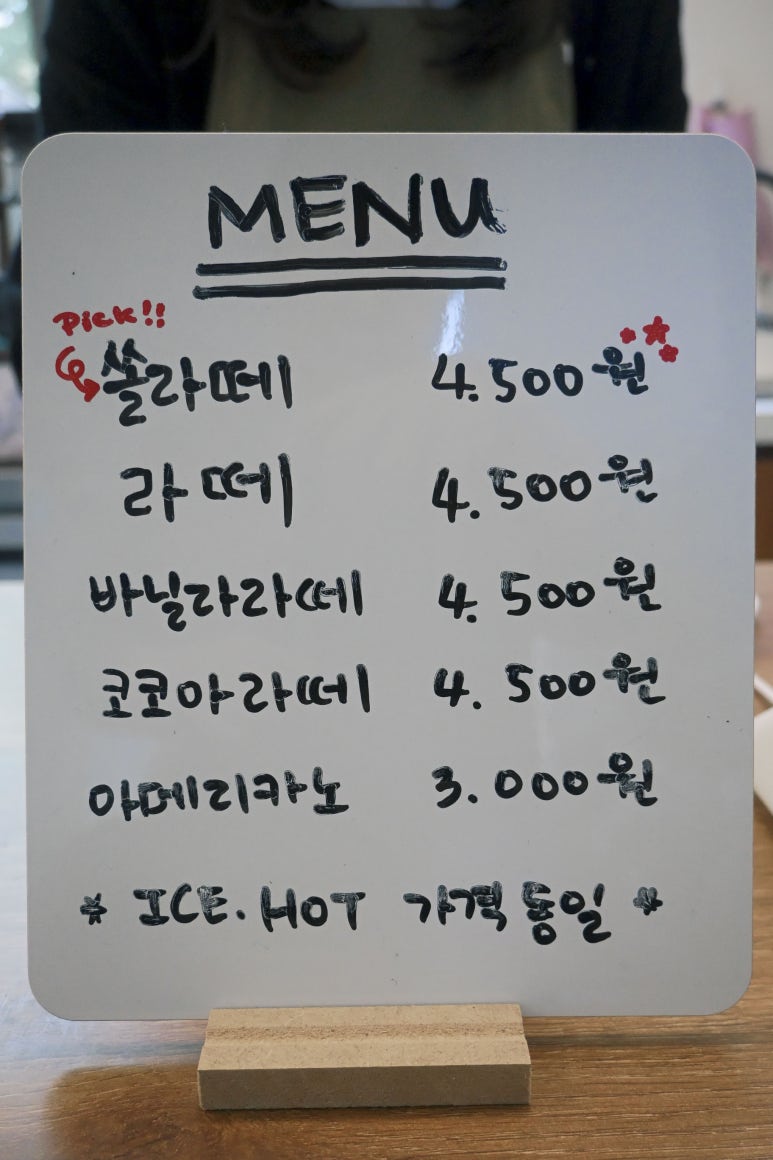 MENU
pick!!
쏠라떼 4.500원
라떼 4.500원
바닐라라떼 4.500원
코코아라떼 4.500원
아메리카노 3.000원
* ICE.HOT 가격동일 *